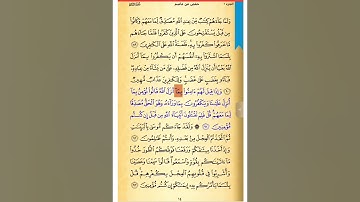 الجزء ١ حفص عن عاصم
وَلَمَّا جَآءَهُمْ كِتَٰبٌ مِّنْ عِندِ ٱللَّهِ مُصَدِّقٌ لِّمَا مَعَهُمْ وَكَانُوا۟
مِن قَبْلُ يَسْتَفْتِحُونَ عَلَى ٱلَّذِينَ كَفَرُوا۟ فَلَمَّا جَآءَهُم
مَّا عَرَفُوا۟ كَفَرُوا۟ بِهِۦ فَلَعْنَةُ ٱللَّهِ عَلَى ٱلْكَٰفِرِينَ ٨٩
بِئْسَمَا ٱشْتَرَوْا۟ بِهِۦٓ أَنفُسَهُمْ أَن يَكْفُرُوا۟ بِمَآ أَنزَلَ
ٱللَّهُ بَغْيًا أَن يُنَزِّلَ ٱللَّهُ مِن فَضْلِهِۦ عَلَىٰ مَن يَشَآءُ مِنْ عِبَادِهِۦ
فَبَآءُو بِغَضَبٍ عَلَىٰ غَضَبٍ وَلِلْكَٰفِرِينَ عَذَابٌ مُّهِينٌ
٩٠ وَإِذَا قِيلَ لَهُمْ ءَامِنُوا۟ بِمَآ أَنزَلَ ٱللَّهُ قَالُوا۟ نُؤْمِنُ بِمَآ
أُنزِلَ عَلَيْنَا وَيَكْفُرُونَ بِمَا وَرَآءَهُۥ وَهُوَ ٱلْحَقُّ مُصَدِّقًا
لِّمَا مَعَهُمْ قُلْ فَلِمَ تَقْتُلُونَ أَنۢبِيَآءَ ٱللَّهِ مِن قَبْلُ إِن كُنتُم
مُّؤْمِنِينَ ٩١ وَلَقَدْ جَآءَكُم مُّوسَىٰ بِٱلْبَيِّنَٰتِ ثُمَّ
ٱتَّخَذْتُمُ ٱلْعِجْلَ مِنۢ بَعْدِهِۦ وَأَنتُمْ ظَٰلِمُونَ ٩٢
وَإِذْ أَخَذْنَا مِيثَٰقَكُمْ وَرَفَعْنَا فَوْقَكُمُ ٱلطُّورَ خُذُوا۟
مَآ ءَاتَيْنَٰكُم بِقُوَّةٍ وَٱسْمَعُوا۟ قَالُوا۟ سَمِعْنَا وَعَصَيْنَا
وَأُشْرِبُوا۟ فِى قُلُوبِهِمُ ٱلْعِجْلَ بِكُفْرِهِمْ قُلْ
بِئْسَمَا يَأْمُرُكُم بِهِۦٓ إِيمَٰنُكُمْ إِن كُنتُم مُّؤْمِنِينَ ٩٣
١٤